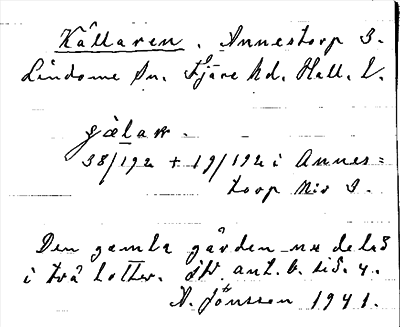 Källaren. Annestorp 3.
Lindome Sn. Fjäre hd. Hall. L.
gålar.
38/192 + 19/192 i Annes=
torp Nis 3.
Den gamla gården nu delad
i två lotter. ant. b. sid. 4.
A. Jönsson 1941.